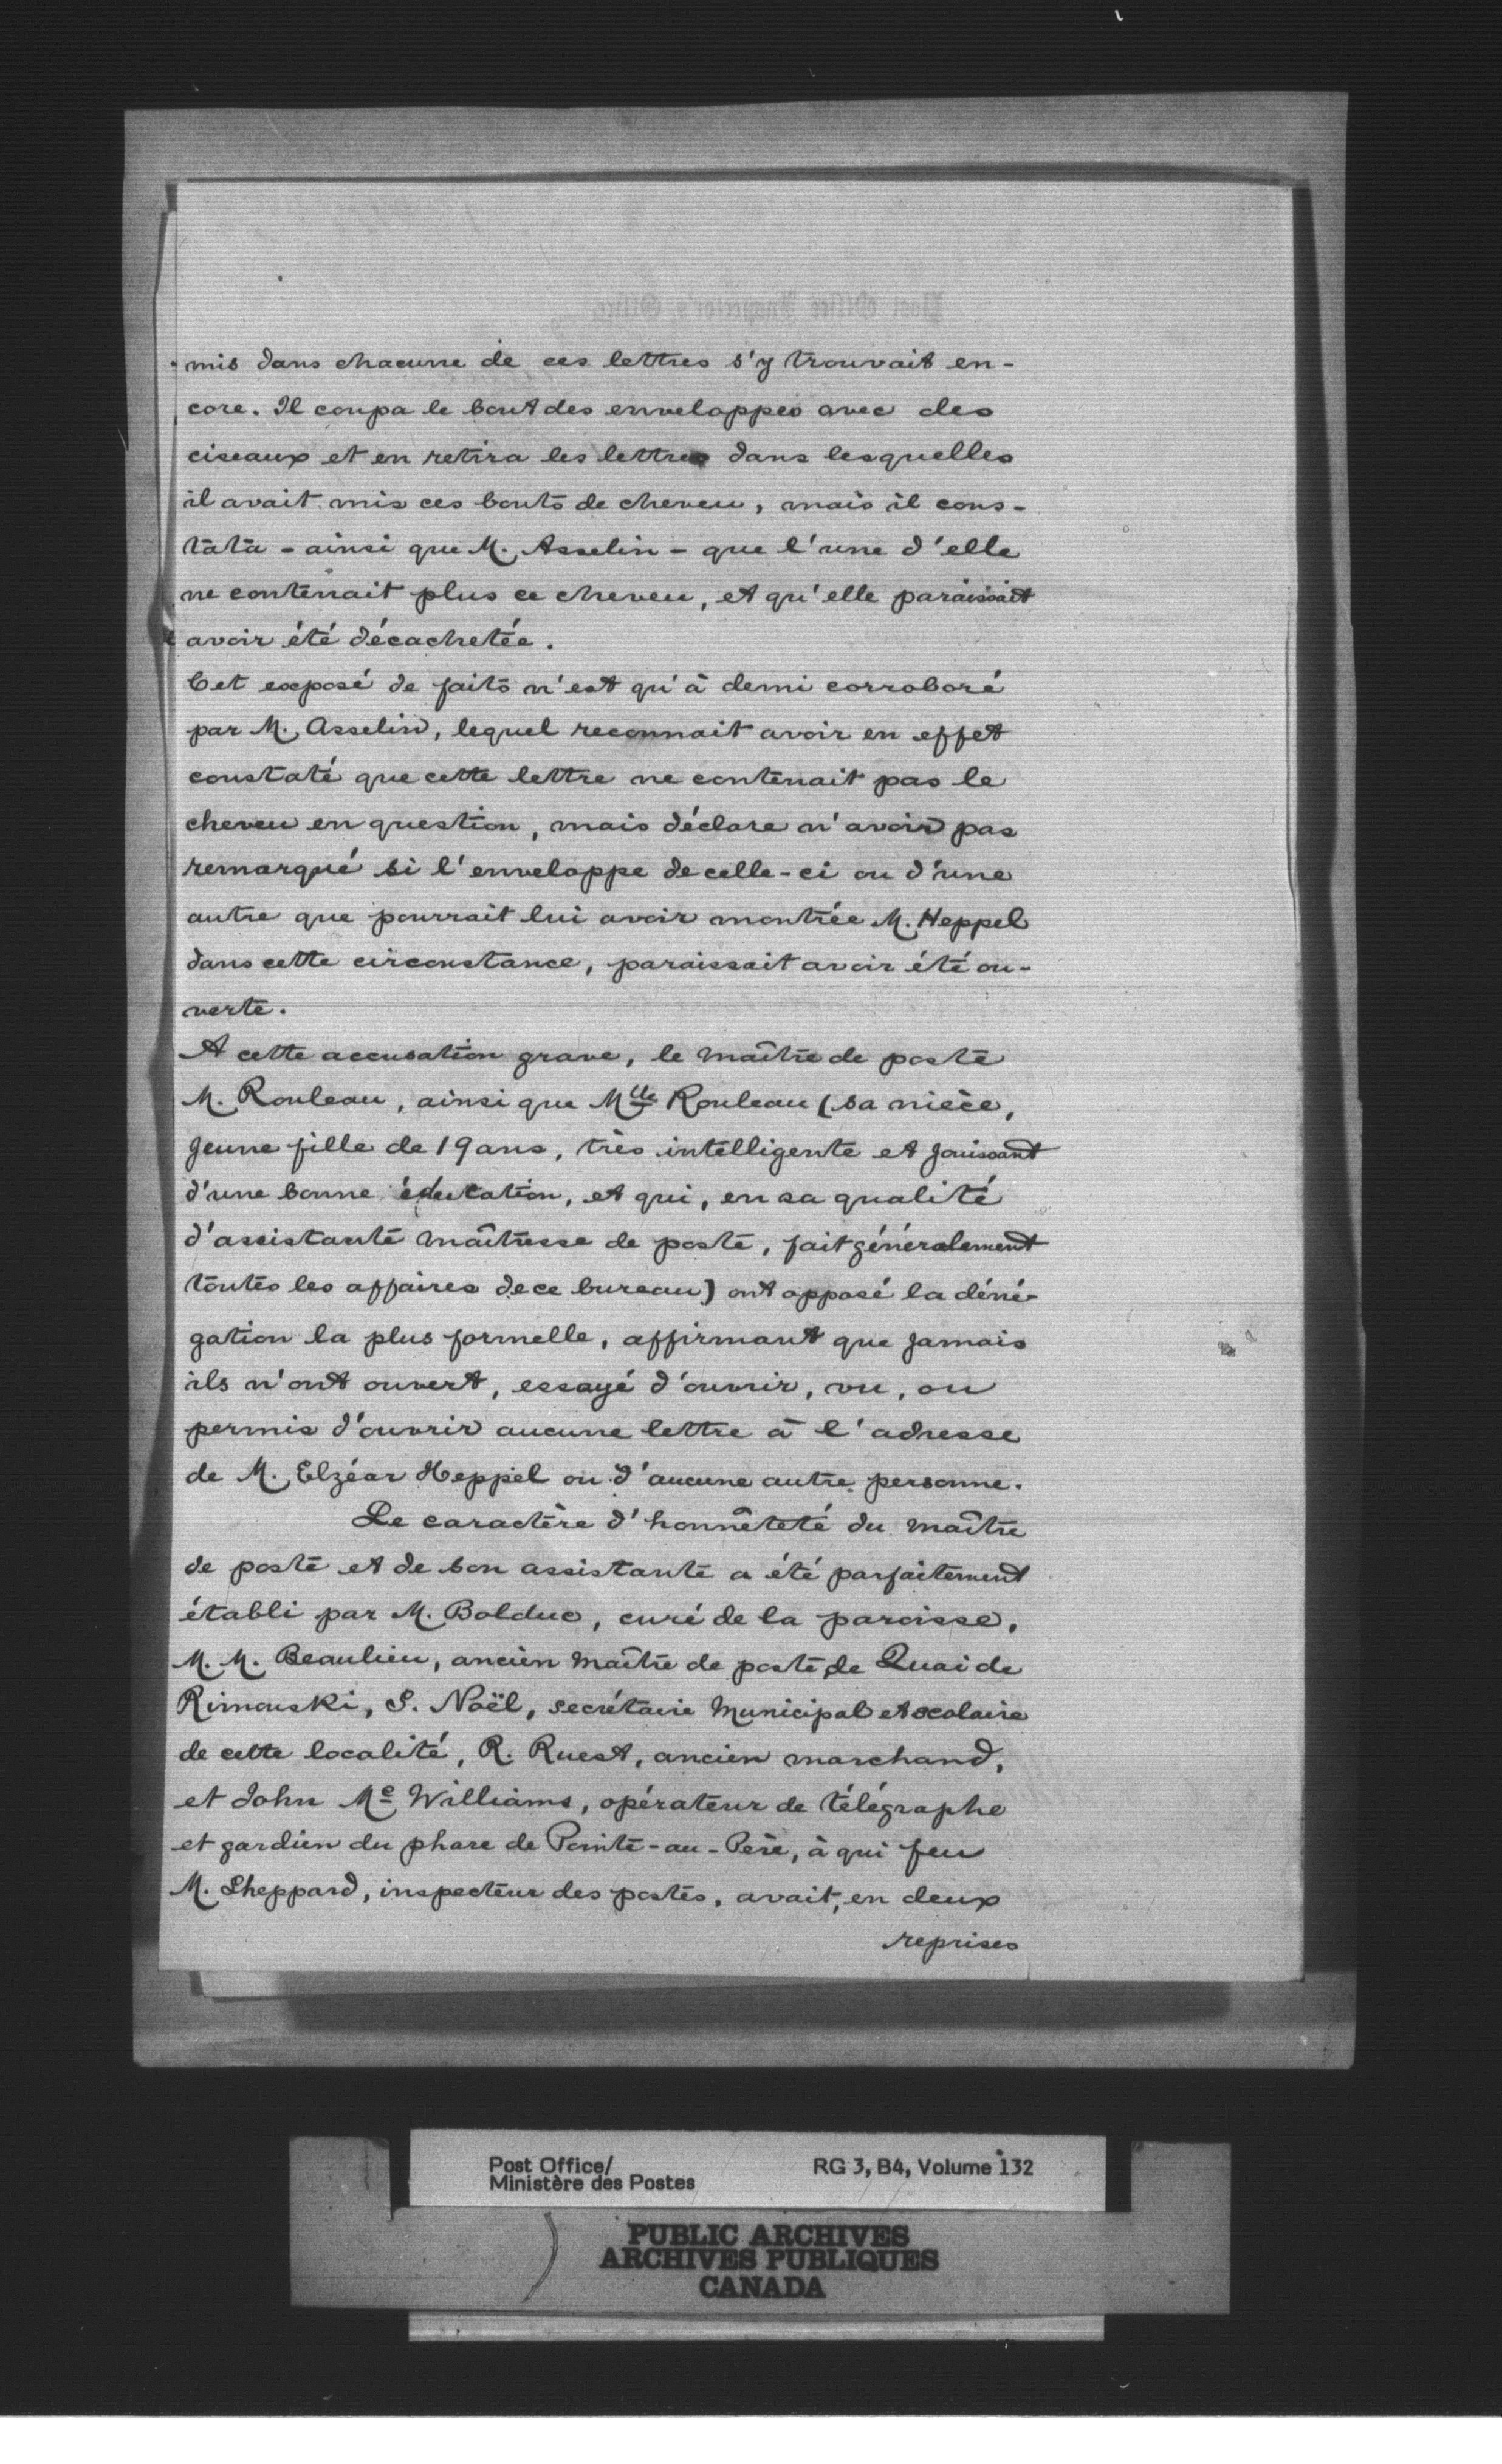 Post Office Inspector's Office,
mis dans chacune de ces lettres s'y trouvait en-
core. Il coupa le bout des enveloppes avec des
ciseaux et en retira les lettres dans lesquelles
il avait mis ces bouts de cheveu, mais il cons-
tata - ainsi que M. Asselin - que l'une d'elle
ne contenait plus ce cheveu, et qu'elle paraissait
avoir été décachetée.
Cet exposé de faits n'est qu'à demi corroboré
par M. Asselin, lequel reconnait avoir en effet
constaté que cette lettre ne contenait pas le
cheveu en question, mais déclare n'avoir pas
remarqué si l'enveloppe de celle-ci ou d'une
autre que pourrait lui avoir montrée M. Heppel
dans cette circonstance, paraissait avoir été ou-
verte.
A cette accusation grave, le maître de poste
M. Rouleau, ainsi que Mlle Rouleau (sa nièce,
jeune fille de 19 ans, très intelligente et jouissant
d'une bonne éducation, et qui, en sa qualité
d'assistante maîtresse de poste, fait généralement
toutes les affaires de ce bureau) ont opposé la déné-
gation la plus formelle, affirmant que jamais
ils n'ont ouvert, essayé d'ouvrir, vu, ou
permis d'ouvrir aucune lettre à l'adresse
de M. Elzéar Heppel ou d'aucune autre personne.
Le caractère d'honnêteté du maître
de poste et de son assistante a été parfaitement
établi par M. Bolduc, curé de la paroisse,
M. M. Beaulieu, ancien maître de poste de Quai de
Rimouski, S. Noël, secrétaire municipal et scolaire
de cette localité, R. Ruest, ancien marchand,
et John Mc Williams, opérateur de télégraphe
et gardien du phare de Pointe-au-Père, à qui feu
M. Sheppard, inspecteur des postes, avait, en deux
reprises
Post Office/
Ministère des Postes
RG 3, B4, Volume 132
PUBLIC ARCHIVES
ARCHIVES PUBLIQUES
CANADA